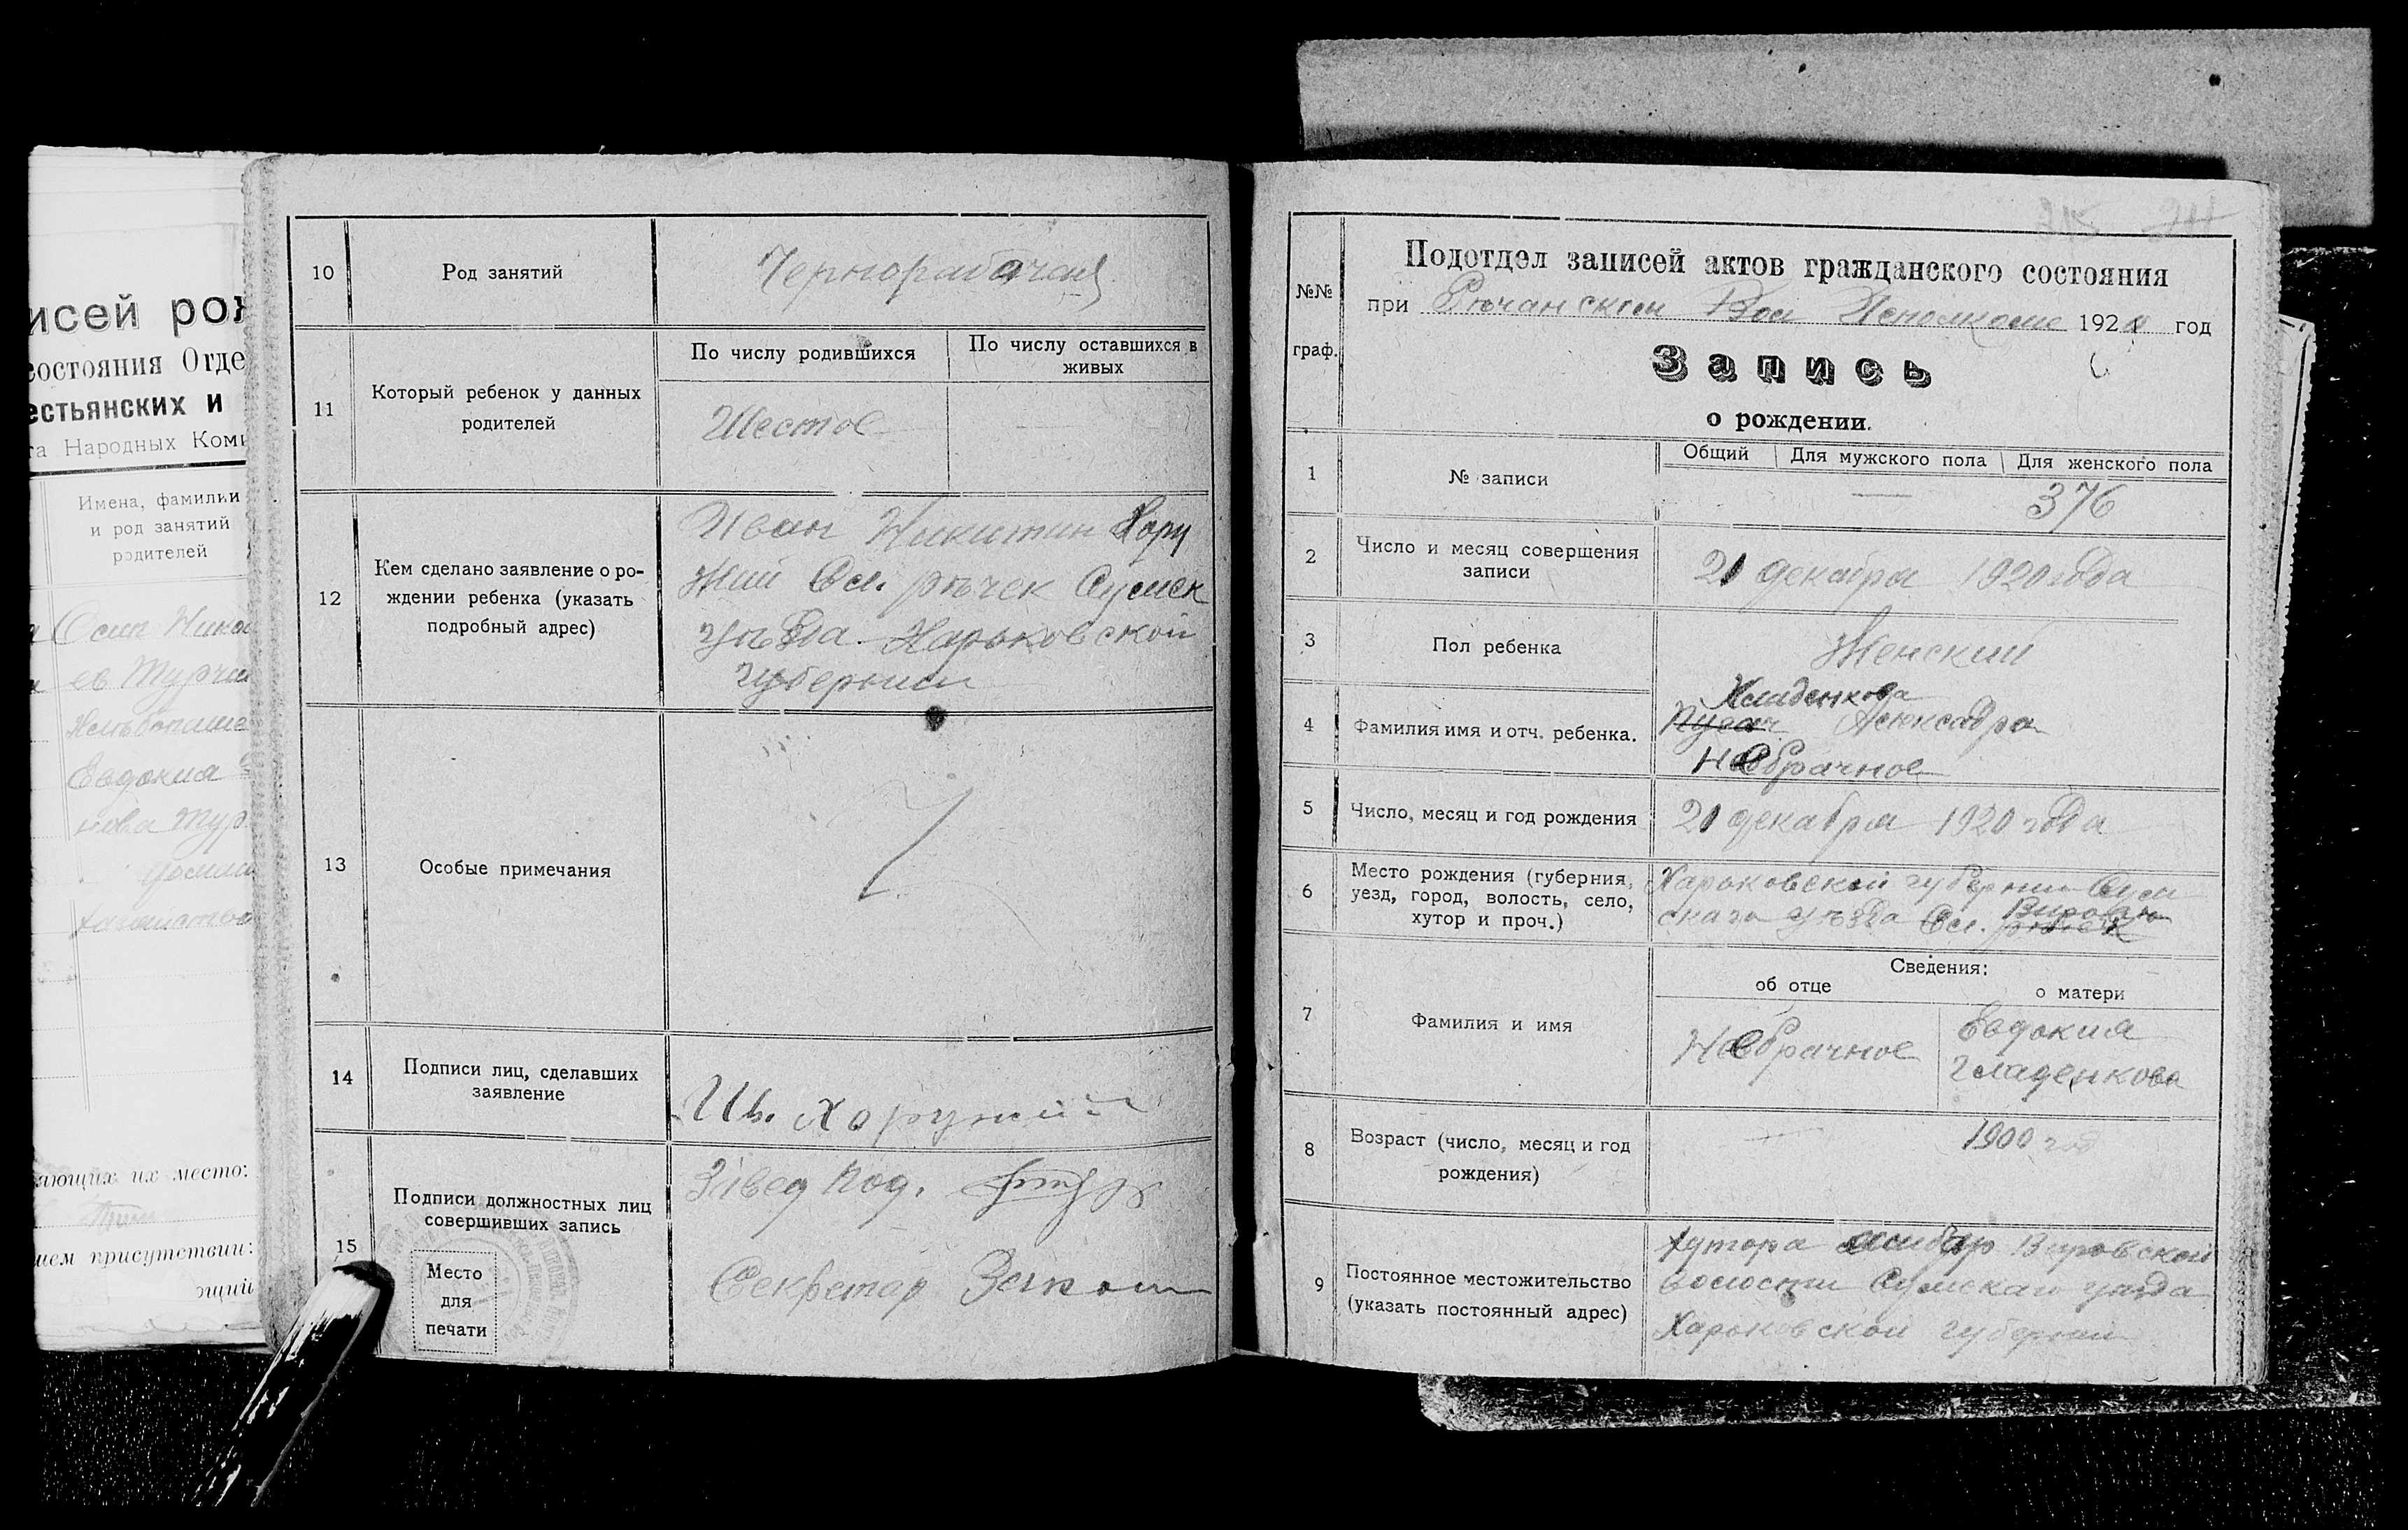 исей рож
состояния Отде
естьянских и
та Народных Коми
Имена, фамилии
и род занятий
родителей
Осип Никол
ев Турчи
Евдокия
нова Тур
яющих их место:
шем присутствии:
ящий
10
Род занятий
Чернорабочий
11
Который ребенок у данных
родителей
По числу родившихся
По числу оставшихся в
живых
Шестое
12
Кем сделано заявление о ро-
ждении ребенка (указать
подробный адрес)
Иван Никитин Хору
жий Сл. рѣчек Сумск
уѣзда Харьковской
губернии
13
Особые примечания
14
Подписи лиц, сделавших
заявление
Ив. Хоружий
15
Подписи должностных лиц
совершивших запись
Место
для
печати
Завед Под.
Секретар
№№
граф.
Подотдел записей актов гражданского состояния
при Рѣчанском Вол Исполкоме 1920 год
Запись
о рождении.
1
№ записи
Общий
Для мужского пола
Для женского пола
— 376
2
Число и месяц совершения
записи
21 декабря 1920 года
3
Пол ребенка
Женский
4
Фамилия имя и отч. ребенка.
Хладенкова
Пугач Алексадра
Небрачное
5
Число, месяц и год рождения
21 декабря 1920 года
6
Место рождения (губерния,
уезд, город, волость, село,
хутор и проч.)
Харьковской губернии Сум
скаго уѣзда Сл. рѣчек
7
Фамилия и имя
Сведения:
об отце
о матери
Небрачное
Евдокия
Гладенкова
8
Возраст (число, месяц и год
рождения)
— 1900 го
9
Постоянное местожительство
(указать постоянный адрес)
хутора Вировской
волости Сумскаго уѣзда
Харьковской губернии